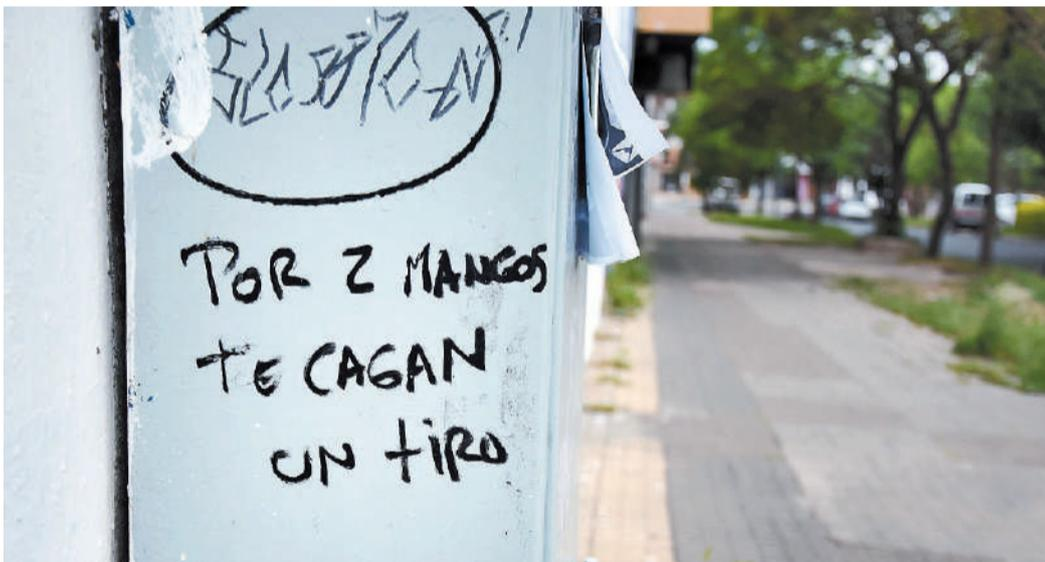 POR 2 MANGOS
TE CAGAN
UN tiRO